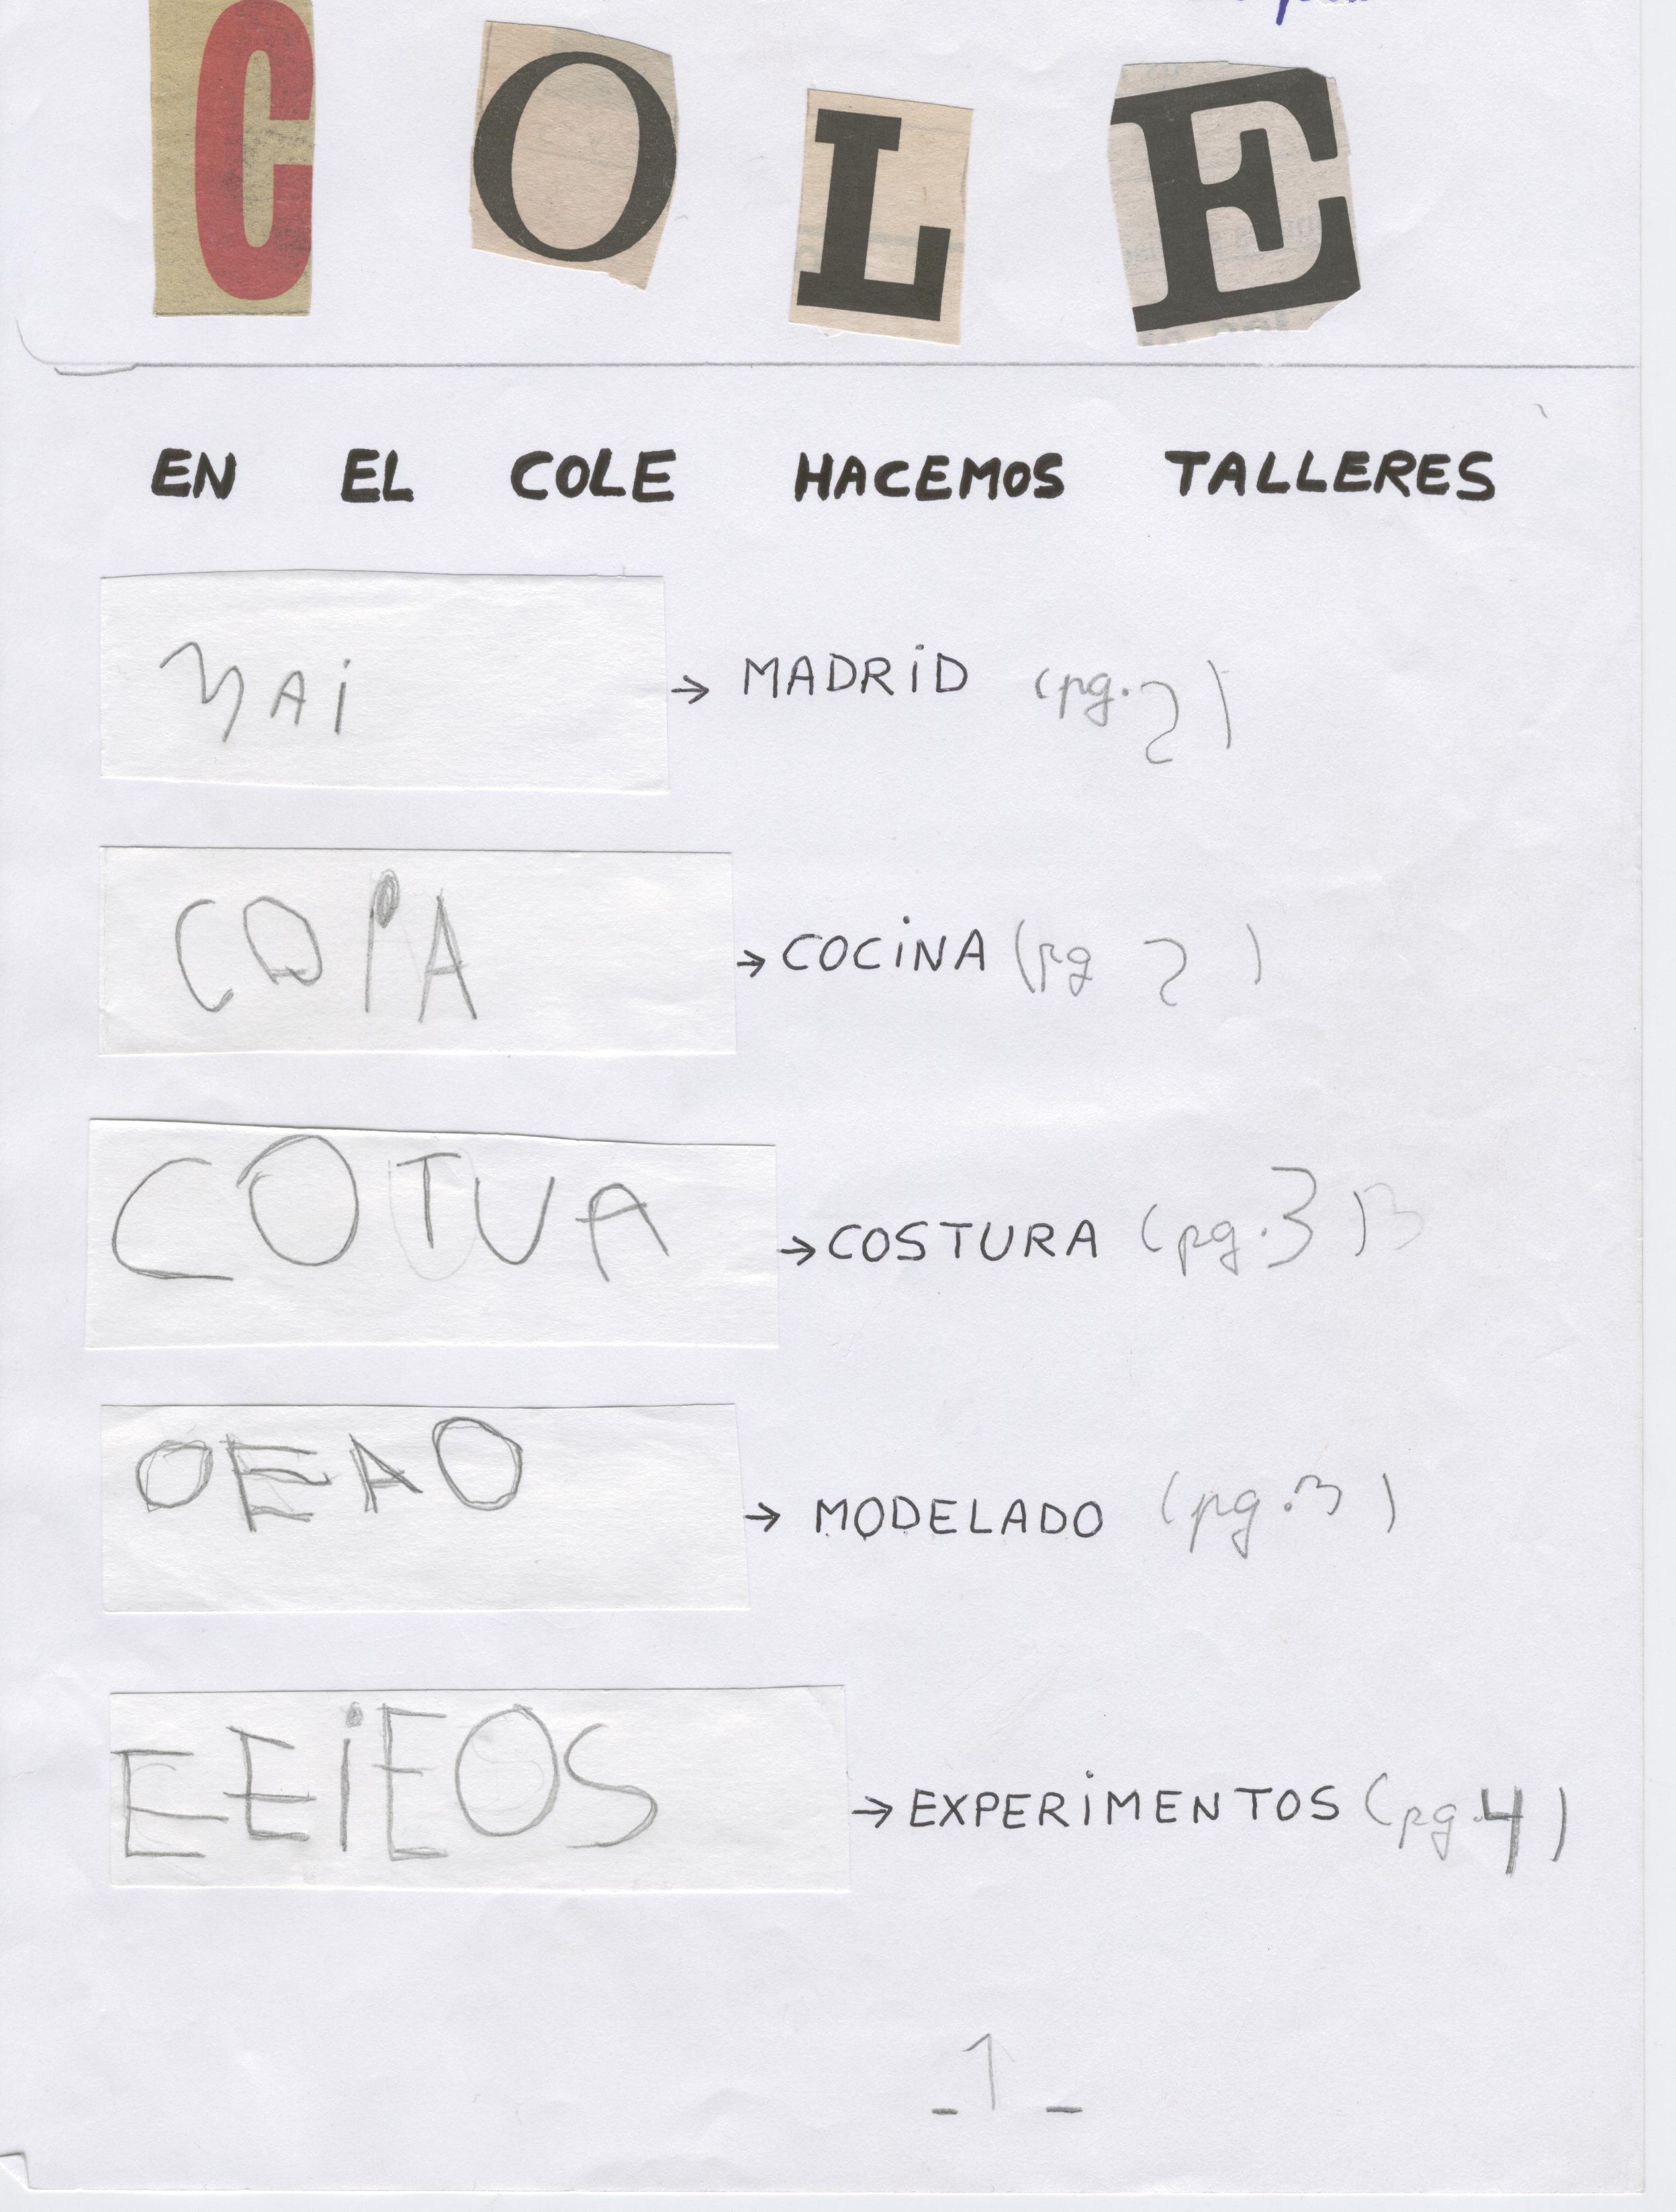 COLE
EN EL COLE HACEMOS TALLERES
MAI → MADRiD (pg. 2)
COPA → COCiNA (pg 2)
COTUA → COSTURA (pg. 3)
OEAO → MODELADO (pg. 3)
EEiEOS → EXPERiMENTOS (pg. 4)
- 1 -